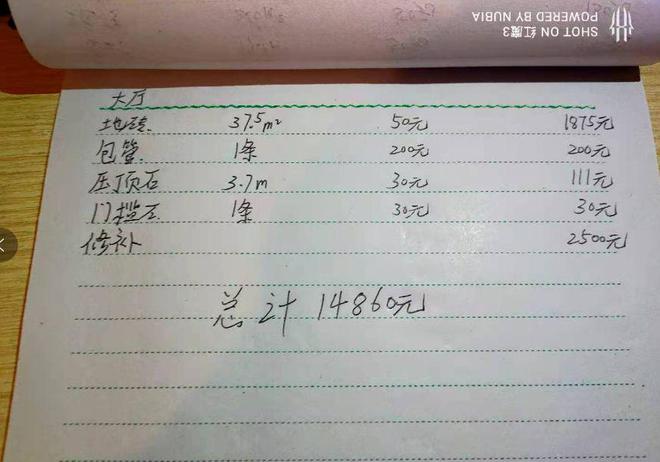 SHOT ON 红魔3
POWERED BY NUBIA
大厅
地砖 37.5m² 50元 1875元
包管 1条 200元 200元
压顶石 3.7m 30元 111元
门槛石 1条 30元 30元
修补 2500元
总计 14860元